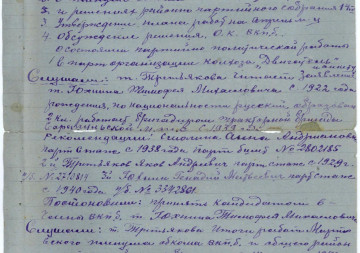 3. и решениях район партийного собрания
3. Утверждение плана работ на апрель м-ц
4. Обсуждение решения О.К. ВКПб.
О состоянии партийно политической работы
в парторганизации колхоза "Двигатель"
Слушали: т. Третьякова читает заявление
т. Юхнина Тимофея Михаловича с 1922 года
рождения, по национальности русский, образован
2 кл. работает бригадиром тракторной бригады
с 1939
Рекомендации
парт стаж с 1938 года парт билет № 2802185
2й Третьяков Яков Андреевич парт стаж с 1929 г.
3й Юхнин Матвеевич парт стаж
с 1940 года п/б № 3542801.
Постановили: принять кандидатом в
члены ВКПб. т. Юхнина Тимофея Михаловича
Слушали: т. Третьякова Итоги работы
пленума обкома ВКПб. и общего район